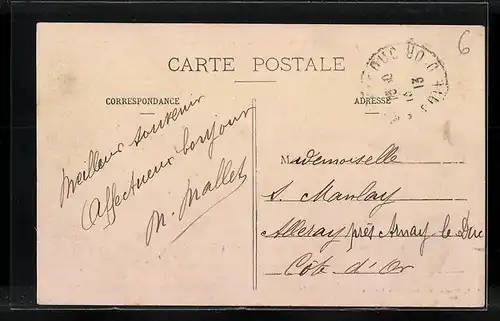 6
CARTE POSTALE
CORRESPONDANCE
ADRESSE
Meilleur souvenir
Affectueux bonjour
M. Mallet
Mademoiselle
S. Manlay
Alleray près Arnay le Duc
Côte d'Or